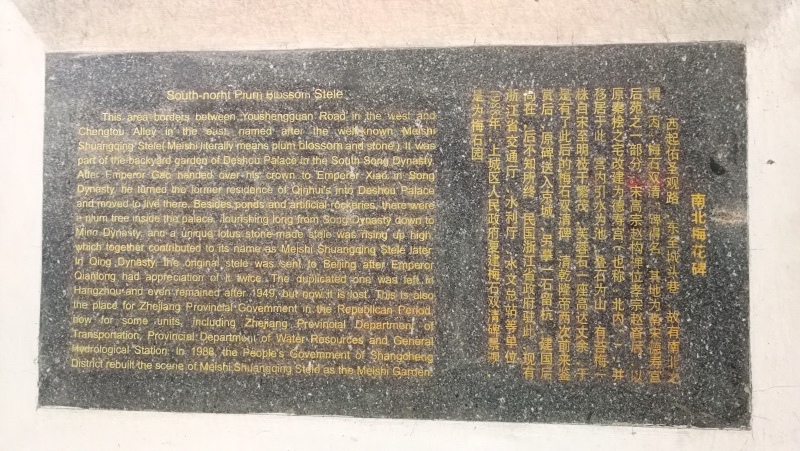 South-norht Plum Blossom Stele
This area borders between Youshengguan Road in the west and
Chengtou Alley in the east, named after the well-known Meishi
Shuangqing Stele( Meishi literally means plum blossom and stone ). It was
part of the backyard garden of Deshou Palace in the South Song Dynasty.
After Emperor Gao handed over his crown to Emperor Xiao in Song
Dynasty, he turned the former residence of Qinhui's into Deshou Palace
and moved to live there. Besides ponds and artificial rockeries, there were
a plum tree inside the palace, flourishing long from Song Dynasty down to
Ming Dynasty, and a unique lotus stone-made stele was rising up high,
which together contributed to its name as Meishi Shuangqing Stele later.
In Qing Dynasty, the original stele was sent to Beijing after Emperor
Qianlong had appreciation of it twice. The duplicated one was left in
Hangzhou and even remained after 1949, but now it is lost. This is also
the place for Zhejiang Provincial Government in the Republican Period,
now for some units, including Zhejiang Provincial Department of
Transportation, Provincial Department of Water Resources and General
Hydrological Station. In 1988, the People's Government of Shangcheng
District rebuilt the scene of Meishi Shuangqing Stele as the Meishi Garden.
南北梅花碑
西起佑圣观路，东至城头巷，故有南北之
谓，因“梅石双清”碑得名。其地为南宋德寿宫
后苑之一部分。宋高宗赵构禅位孝宗赵昚后，以
原秦桧之宅改建为德寿宫（也称“北内”），并
移居于此。宫内引水为池，叠石为山，有苔梅一
株自宋至明枝干繁茂，芙蓉石一座高达丈余，于
是有了此后的梅石双清碑。清乾隆帝两次前来鉴
赏后，原碑送入京城，另摹一石留杭，建国后
尚在，后不知所终。民国浙江省政府驻此，现有
浙江省交通厅、水利厅、水文总站等单位。
1988年，上城区人民政府复建梅石双清碑景观，
是为梅石园。